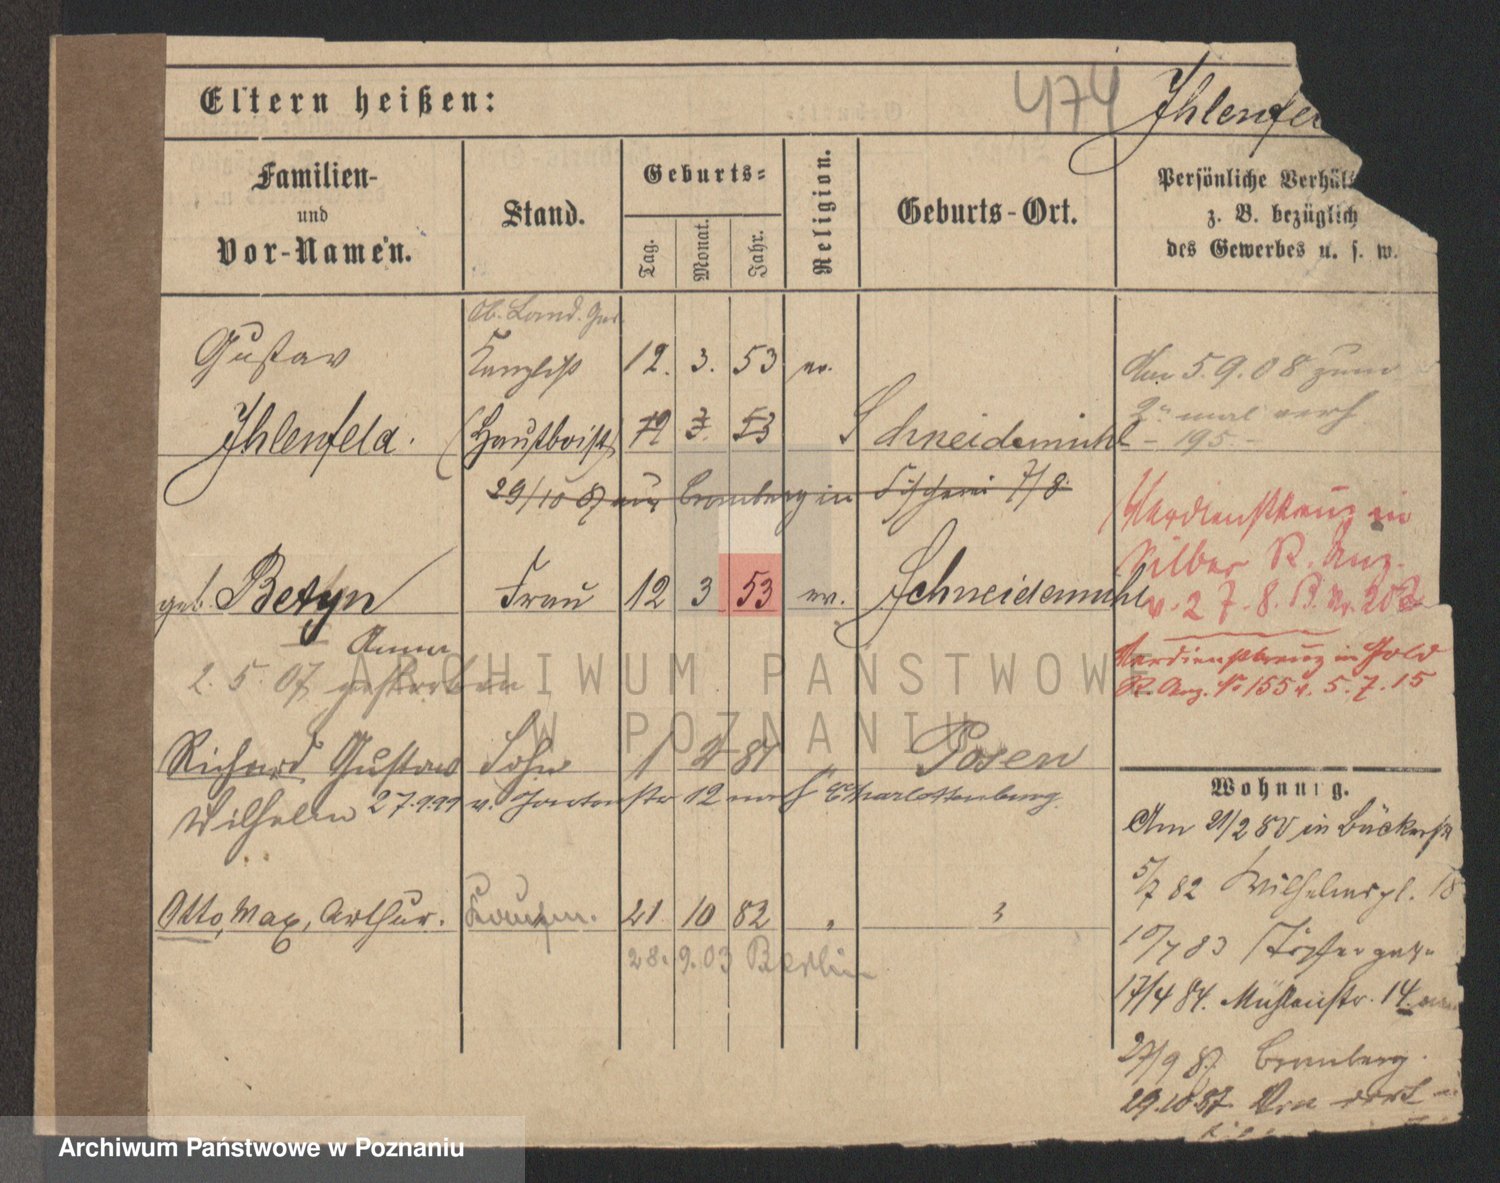 Eltern heißen:
474
Ihlenfel
Familien-
und
Vor-Namen.
Stand.
Geburts-
Tag.
Monat.
Jahr.
Religion.
Geburts-Ort.
Persönliche Verhäl
z. B. bezüglich
des Gewerbes u. s. w.
Ob. Land. Ger.
Gustav Kanzlist 12. 3. 53 ev.
Ihlenfeld. (Hautboist) 12 3. 53 Schneidemühl
29/10 87 aus Bromberg in Fischerei 7/8
geb. Betyn Frau 12 3 53 ev. Schneidemühl
Anna
2. 5. 07 gestorben
Richard Gustav Sohn 1 2 81 " Posen
Wilhelm 27.9.99 v. Gartenstr 12 nach Charlottenburg.
Otto, Max, Arthur. Kaufm. 21 10 82 "
28. 9. 03 Berlin
den 5. 9. 08 zum
2ten mal verh
- 195 -
Verdienstkreuz in
Silber R. Anz.
v. 27. 8.
Verdienstkreuz in Gold
R. Anz. No 155 v. 5. 7. 15
Wohnung.
Am 21/2 80 in Bäckerstr
5/7 82 Wilhelmspl. 18
10/7 83 Töpfergasse
17/4 84. Mühlenstr. 14.
27/9 87 Bromberg.
29.10.87 Von dort
ARCHIWUM PAŃSTWOW
W POZNANIU
Archiwum Państwowe w Poznaniu